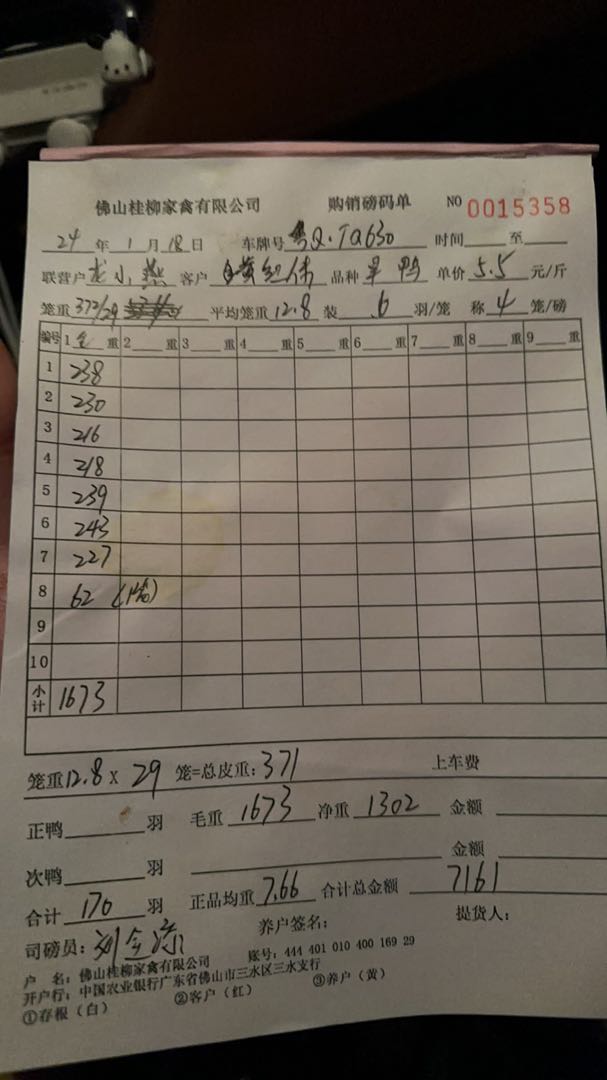 佛山桂柳家禽有限公司 购销磅码单 NO 0015358
24 年 1 月 18 日 车牌号 粤Q·TQ630 时间 至
联营户 龙小燕 客户 品种 鸭 单价 5.5 元/斤
笼重 372/29 平均笼重 12.8 装 6 羽/笼 称 4 笼/磅
编号 1 毛 重 2 重 3 重 4 重 5 重 6 重 7 重 8 重 9 重
1 238
2 230
3 216
4 218
5 239
6 243
7 227
8 62 (1笼)
9
10
小计 1673
笼重 12.8 x 29 笼=总皮重: 371 上车费
正鸭 羽 毛重 1673 净重 1302 金额
次鸭 羽 金额
合计 170 羽 正品均重 7.66 合计总金额 7161
司磅员: 刘 养户签名: 提货人:
户 名: 佛山桂柳家禽有限公司 账号: 444 401 010 400 169 29
开户行: 中国农业银行广东省佛山市三水区三水支行
①存根（白） ②客户（红） ③养户（黄）